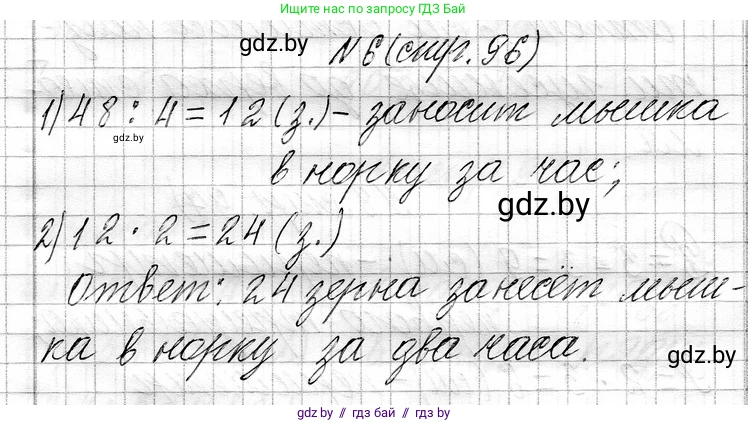 Ищите нас по запросу ГДЗ Бай
gdz.by
№ 6 (стр. 96)
1) 48 : 4 = 12 (з.) - заносит мышка
gdz.by
в норку за час;
gdz.by
2) 12 · 2 = 24 (з.)
Ответ: 24 зерна занесёт мыш-
ка в норку за два часа.
gdz.by
gdz.by // гдз бай // гдз by